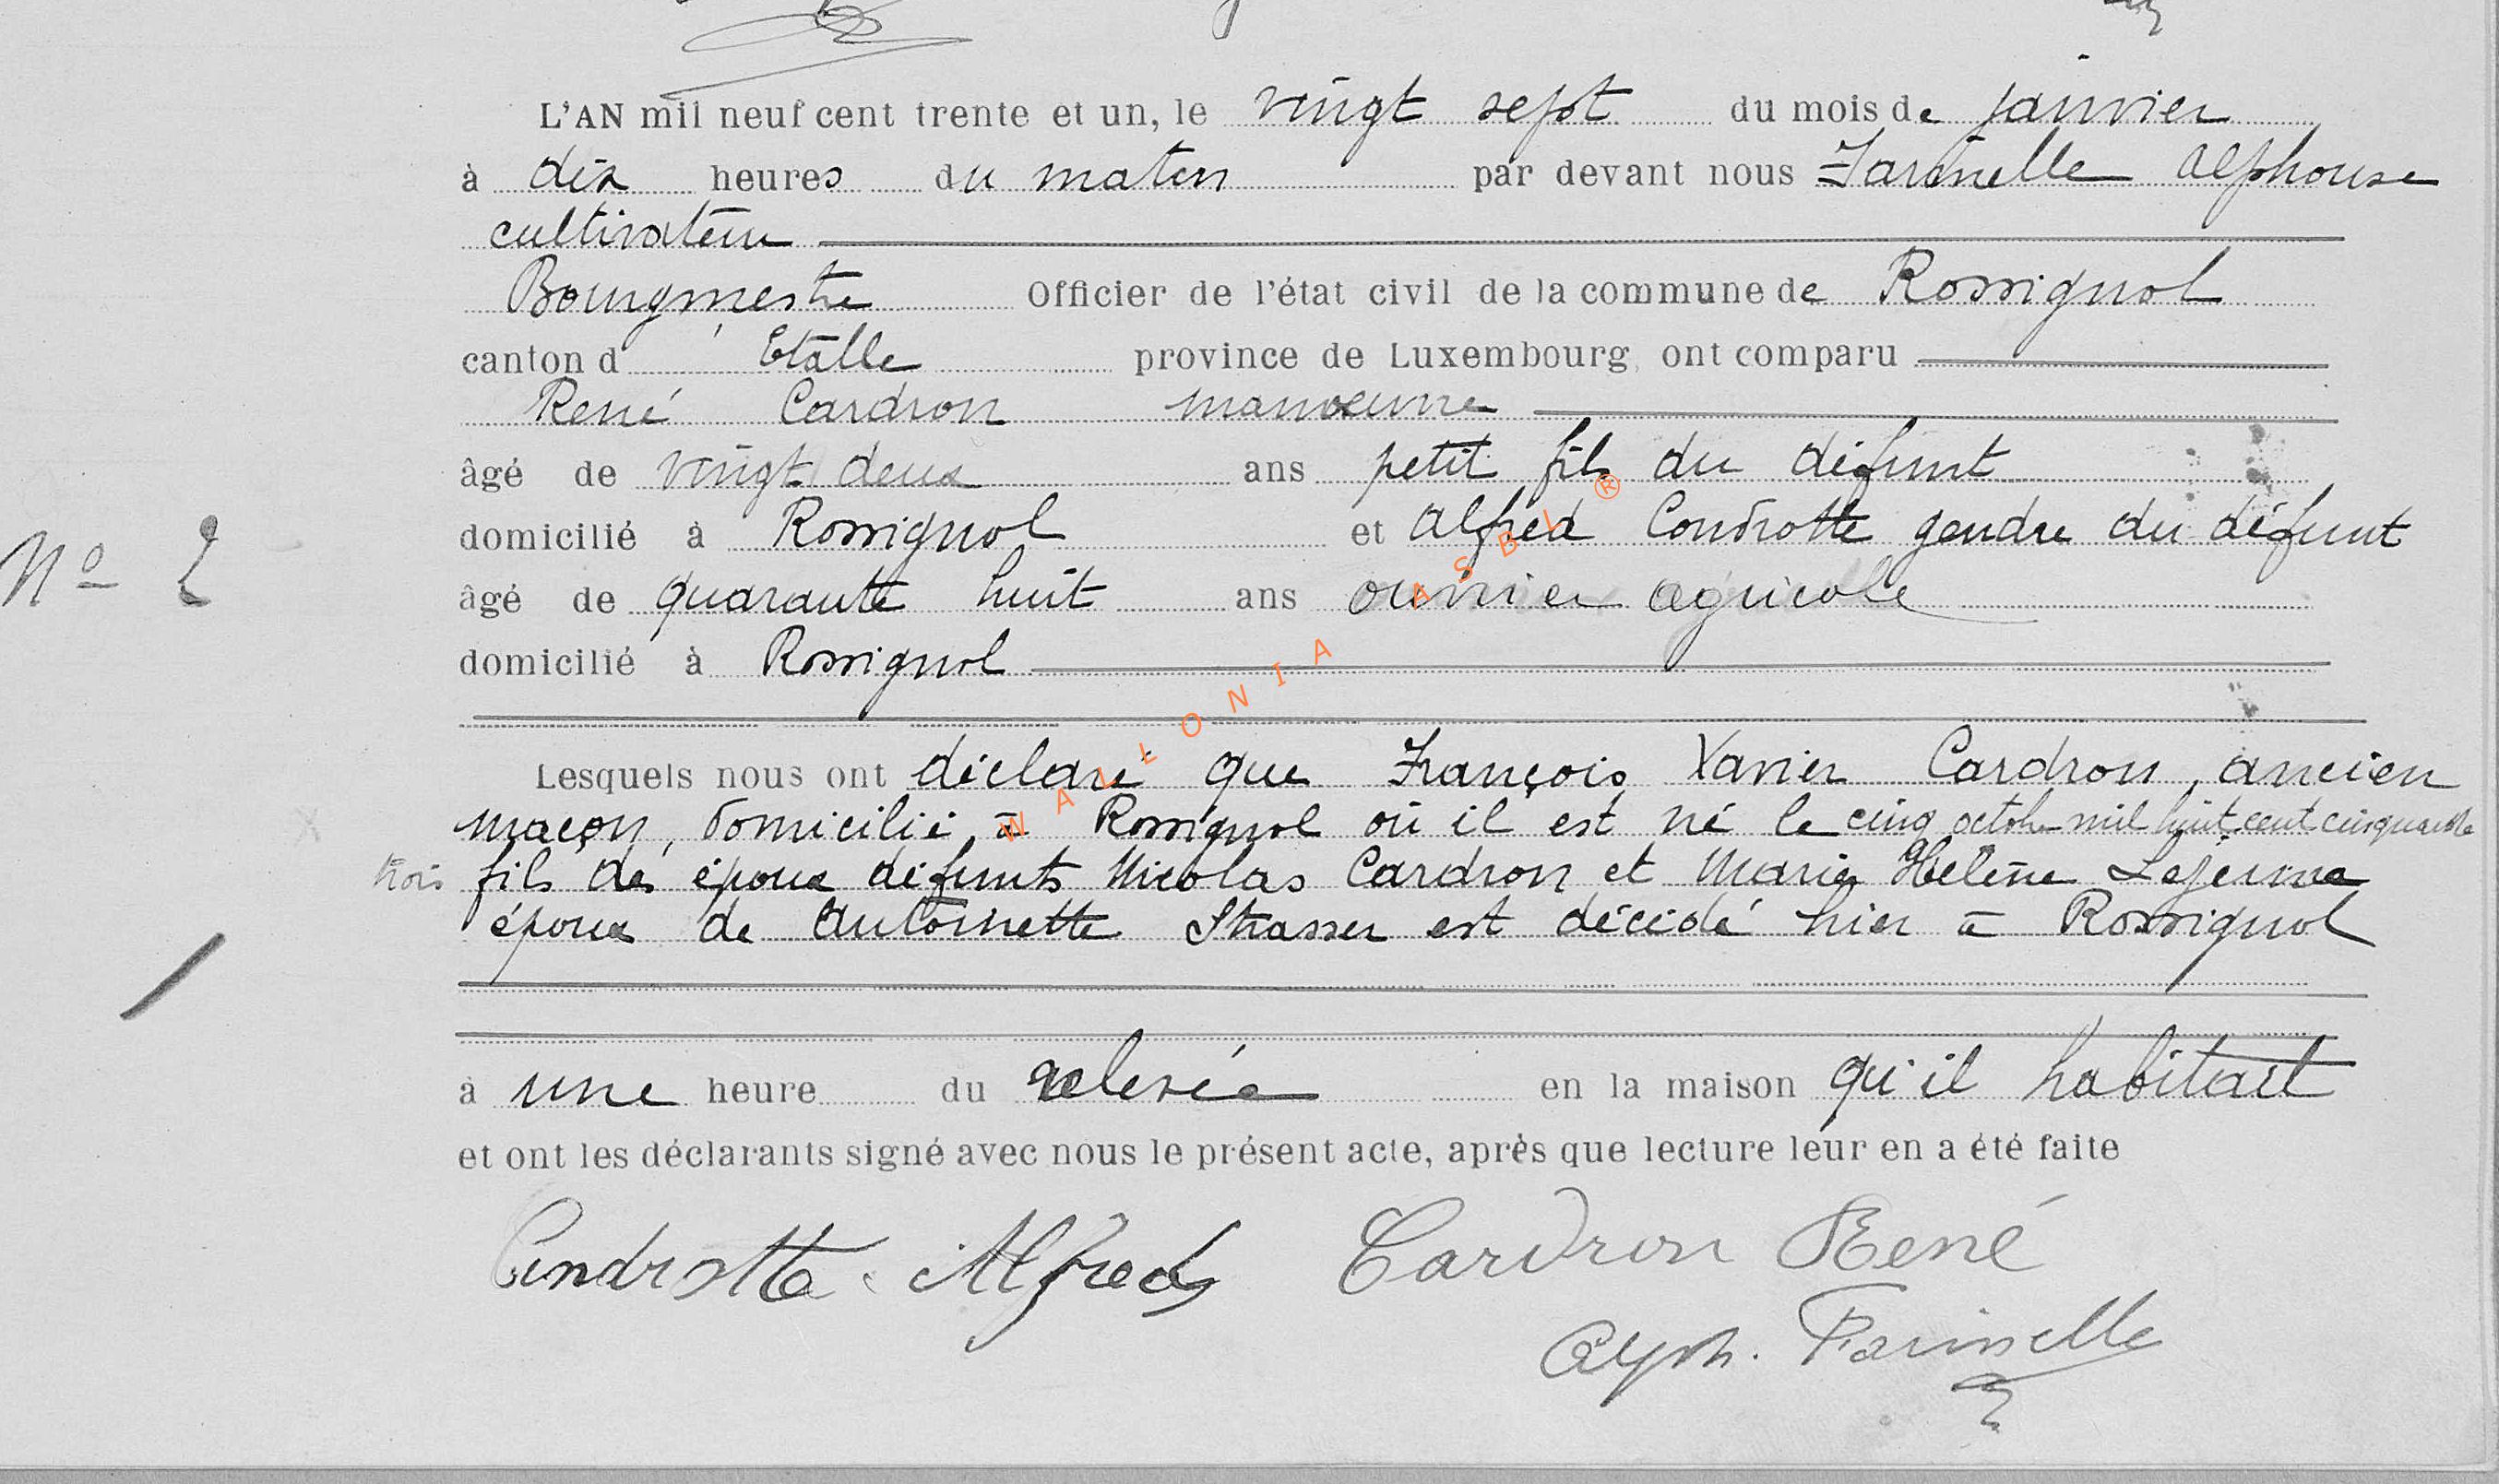 L'AN mil neuf cent trente et un, le vingt sept du mois de janvier
à dix heures du matin par devant nous Farinelle Alphonse
cultivateur
Bourgmestre Officier de l'état civil de la commune de Rossignol
canton d' Etalle province de Luxembourg, ont comparu
René Cardron manoeuvre
âgé de vingt deux ans petit fils du défunt
domicilié à Rossignol et Alfred Condrotte gendre du défunt
N° 2
âgé de quarante huit ans ouvrier agricole
domicilié à Rossignol
Lesquels nous ont déclaré que François Xavier Cardron, ancien
maçon, domicilié à Rossignol où il est né le cinq octobre mil huit cent cinquante
trois fils des époux défunts Nicolas Cardron et Marie Hélène Lejeune
époux de Antoinette Strasser est décédé hier à Rossignol
à une heure du relevée en la maison qu'il habitait
et ont les déclarants signé avec nous le présent acte, après que lecture leur en a été faite
Condrotte Alfred Cardron René
Alph. Farinelle
WALLONIA ASBL ®